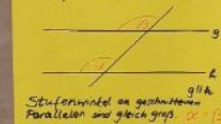 β
g
α
h
g∥h
Stufenwinkel an geschnittenen
Parallelen sind gleich groß. α = β